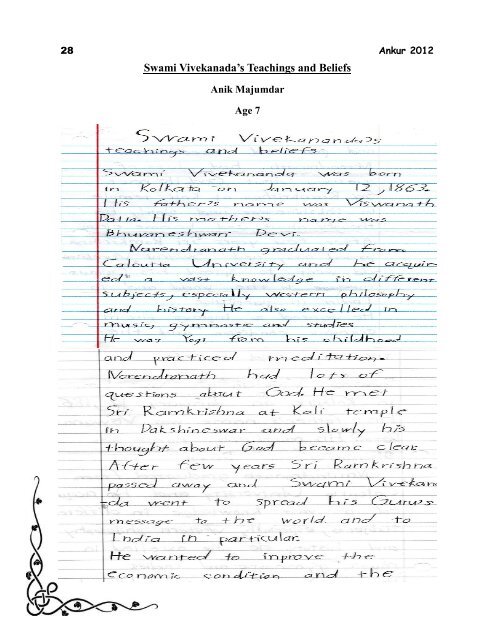 28 Ankur 2012
Swami Vivekanada's Teachings and Beliefs
Anik Majumdar
Age 7
Swami Vivekananda's
teachings and beliefs
Swami Vivekananda was born
in Kolkata on January 12, 1863.
His father's name was Viswanath
Datta. His mother's name was
Bhuvaneshwari Devi.
Narendranath graduated from
Calcutta University and he acquir
ed a vast knowledge in different
subjects, especially western philosophy
and history. He also excelled in
music, gymnastic and studies
He was Yogi from his childhood
and practiced meditation.
Narendranath had lots of
questions about God. He met
Sri Ramkrishna at Kali temple
in Dakshineswar and slowly his
thought about God became clear.
After few years Sri Ramkrishna
passed away and Swami Vivekan
da went to spread his Guru's
message to the world and to
India in particular.
He wanted to inprove the
economic condition and the